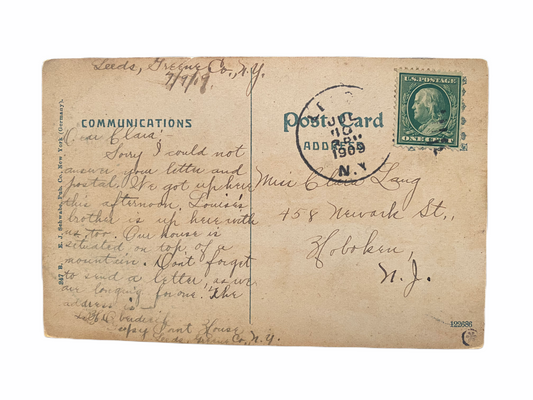 Leeds, Greene Co., N.Y.
7/9/09.
COMMUNICATIONS
Post Card
ADDRESS
U.S. POSTAGE
ONE CENT
JUL
10
1909
N.Y.
Dear Clara:-
Sorry I could not
answer your letter and
postal. We got up here
this afternoon. Louise's
brother is up here with
us too. Our house is
situated on top of a
mountain. Don't forget
to send a letter, as we
are longing for one. The
address is:-
House
Leeds, Greene Co., N.Y.
Miss Clara Lang
458 Newark St.,
Hoboken,
N.J.
Pub. Co., New York (Germany).
A22686